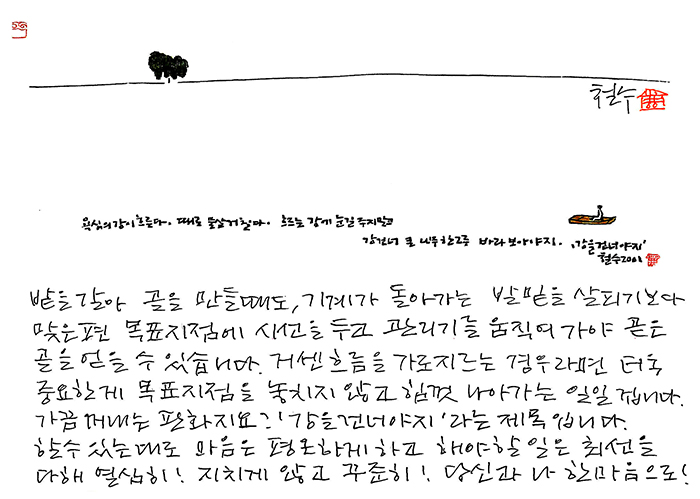 철수
욕심의 강이 흐른다. 때로 물살 거칠다. 흐르는 강에 눈길 주지말고
강건너 큰 나무 한그루 바라보아야지. '강을 건너야지'
철수 2001
밭을 갈아 골을 만들때도, 기계가 돌아가는 발밑을 살피기보다
맞은편 목표지점에 시선을 두고 관리기를 움직여 가야 곧은
골을 얻을 수 있습니다. 거센흐름을 가로지르는 경우라면 더욱
중요한게 목표지점을 놓치지 않고 힘껏 나아가는 일일겁니다.
가끔 꺼내는 판화지요? '강을 건너야지'라는 제목입니다.
할수 있는대로 마음은 평온하게 하고 해야할 일은 최선을
다해 열심히! 지치게 않고 꾸준히! 당신과 나 한마음으로!